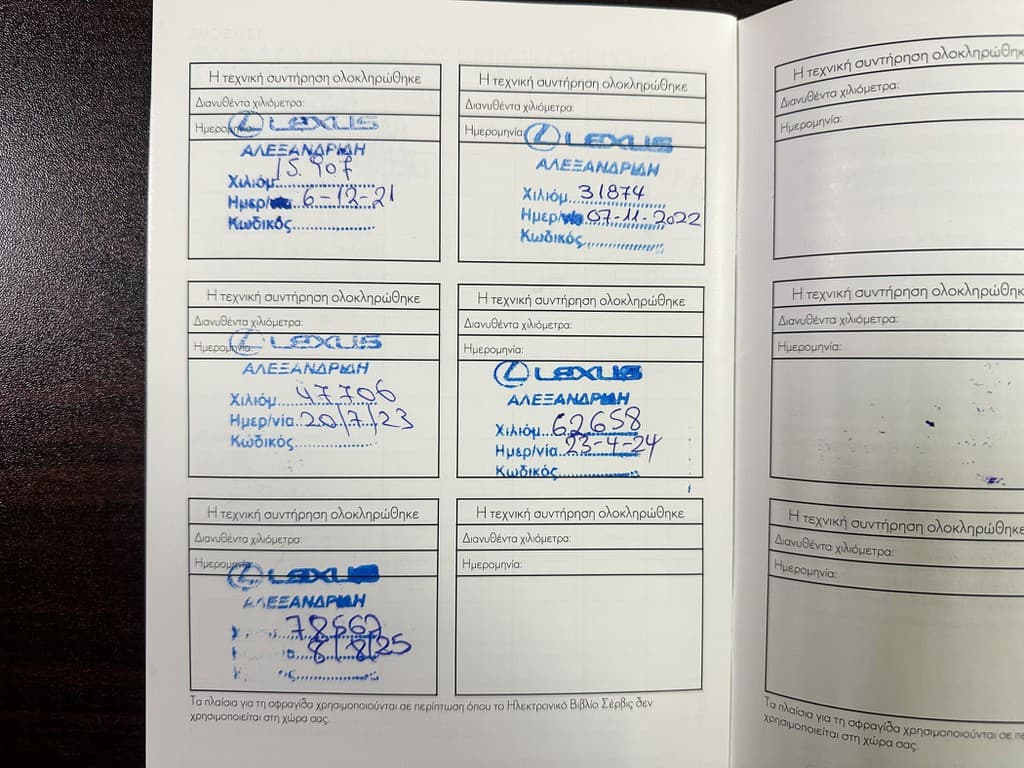 Η τεχνική συντήρηση ολοκληρώθηκε
Διανυθέντα χιλιόμετρα:
Ημερομηνία:
LEXUS
ΑΛΕΞΑΝΔΡΙΔΗ
Χιλιόμ. 15.907
Ημερ/νία 6-12-21
Κωδικός
Η τεχνική συντήρηση ολοκληρώθηκε
Διανυθέντα χιλιόμετρα:
Ημερομηνία
LEXUS
ΑΛΕΞΑΝΔΡΙΔΗ
Χιλιόμ. 31874
Ημερ/νία 07-11-2022
Κωδικός
Η τεχνική συντήρηση ολοκληρώθηκε
Διανυθέντα χιλιόμετρα:
Ημερομηνία:
LEXUS
ΑΛΕΞΑΝΔΡΙΔΗ
Χιλιόμ. 47706
Ημερ/νία 20/7/23
Κωδικός
Η τεχνική συντήρηση ολοκληρώθηκε
Διανυθέντα χιλιόμετρα:
Ημερομηνία:
LEXUS
ΑΛΕΞΑΝΔΡΙΔΗ
Χιλιόμ. 62658
Ημερ/νία 23-4-24
Κωδικός
Η τεχνική συντήρηση ολοκληρώθηκε
Διανυθέντα χιλιόμετρα:
Ημερομηνία:
LEXUS
ΑΛΕΞΑΝΔΡΙΔΗ
78667
8/8/25
Η τεχνική συντήρηση ολοκληρώθηκε
Διανυθέντα χιλιόμετρα:
Ημερομηνία:
Τα πλαίσια για τη σφραγίδα χρησιμοποιούνται σε περίπτωση όπου το Ηλεκτρονικό Βιβλίο Σέρβις δεν
χρησιμοποιείται στη χώρα σας.
Η τεχνική συντήρηση ολοκληρώθηκ
Διανυθέντα χιλιόμετρα:
Ημερομηνία:
Η τεχνική συντήρηση ολοκληρώθηκ
Διανυθέντα χιλιόμετρα:
Ημερομηνία:
Η τεχνική συντήρηση ολοκληρώθηκε
Διανυθέντα χιλιόμετρα:
Ημερομηνία:
Τα πλαίσια για τη σφραγίδα χρησιμοποιούνται σε πε
χρησιμοποιείται στη χώρα σας.